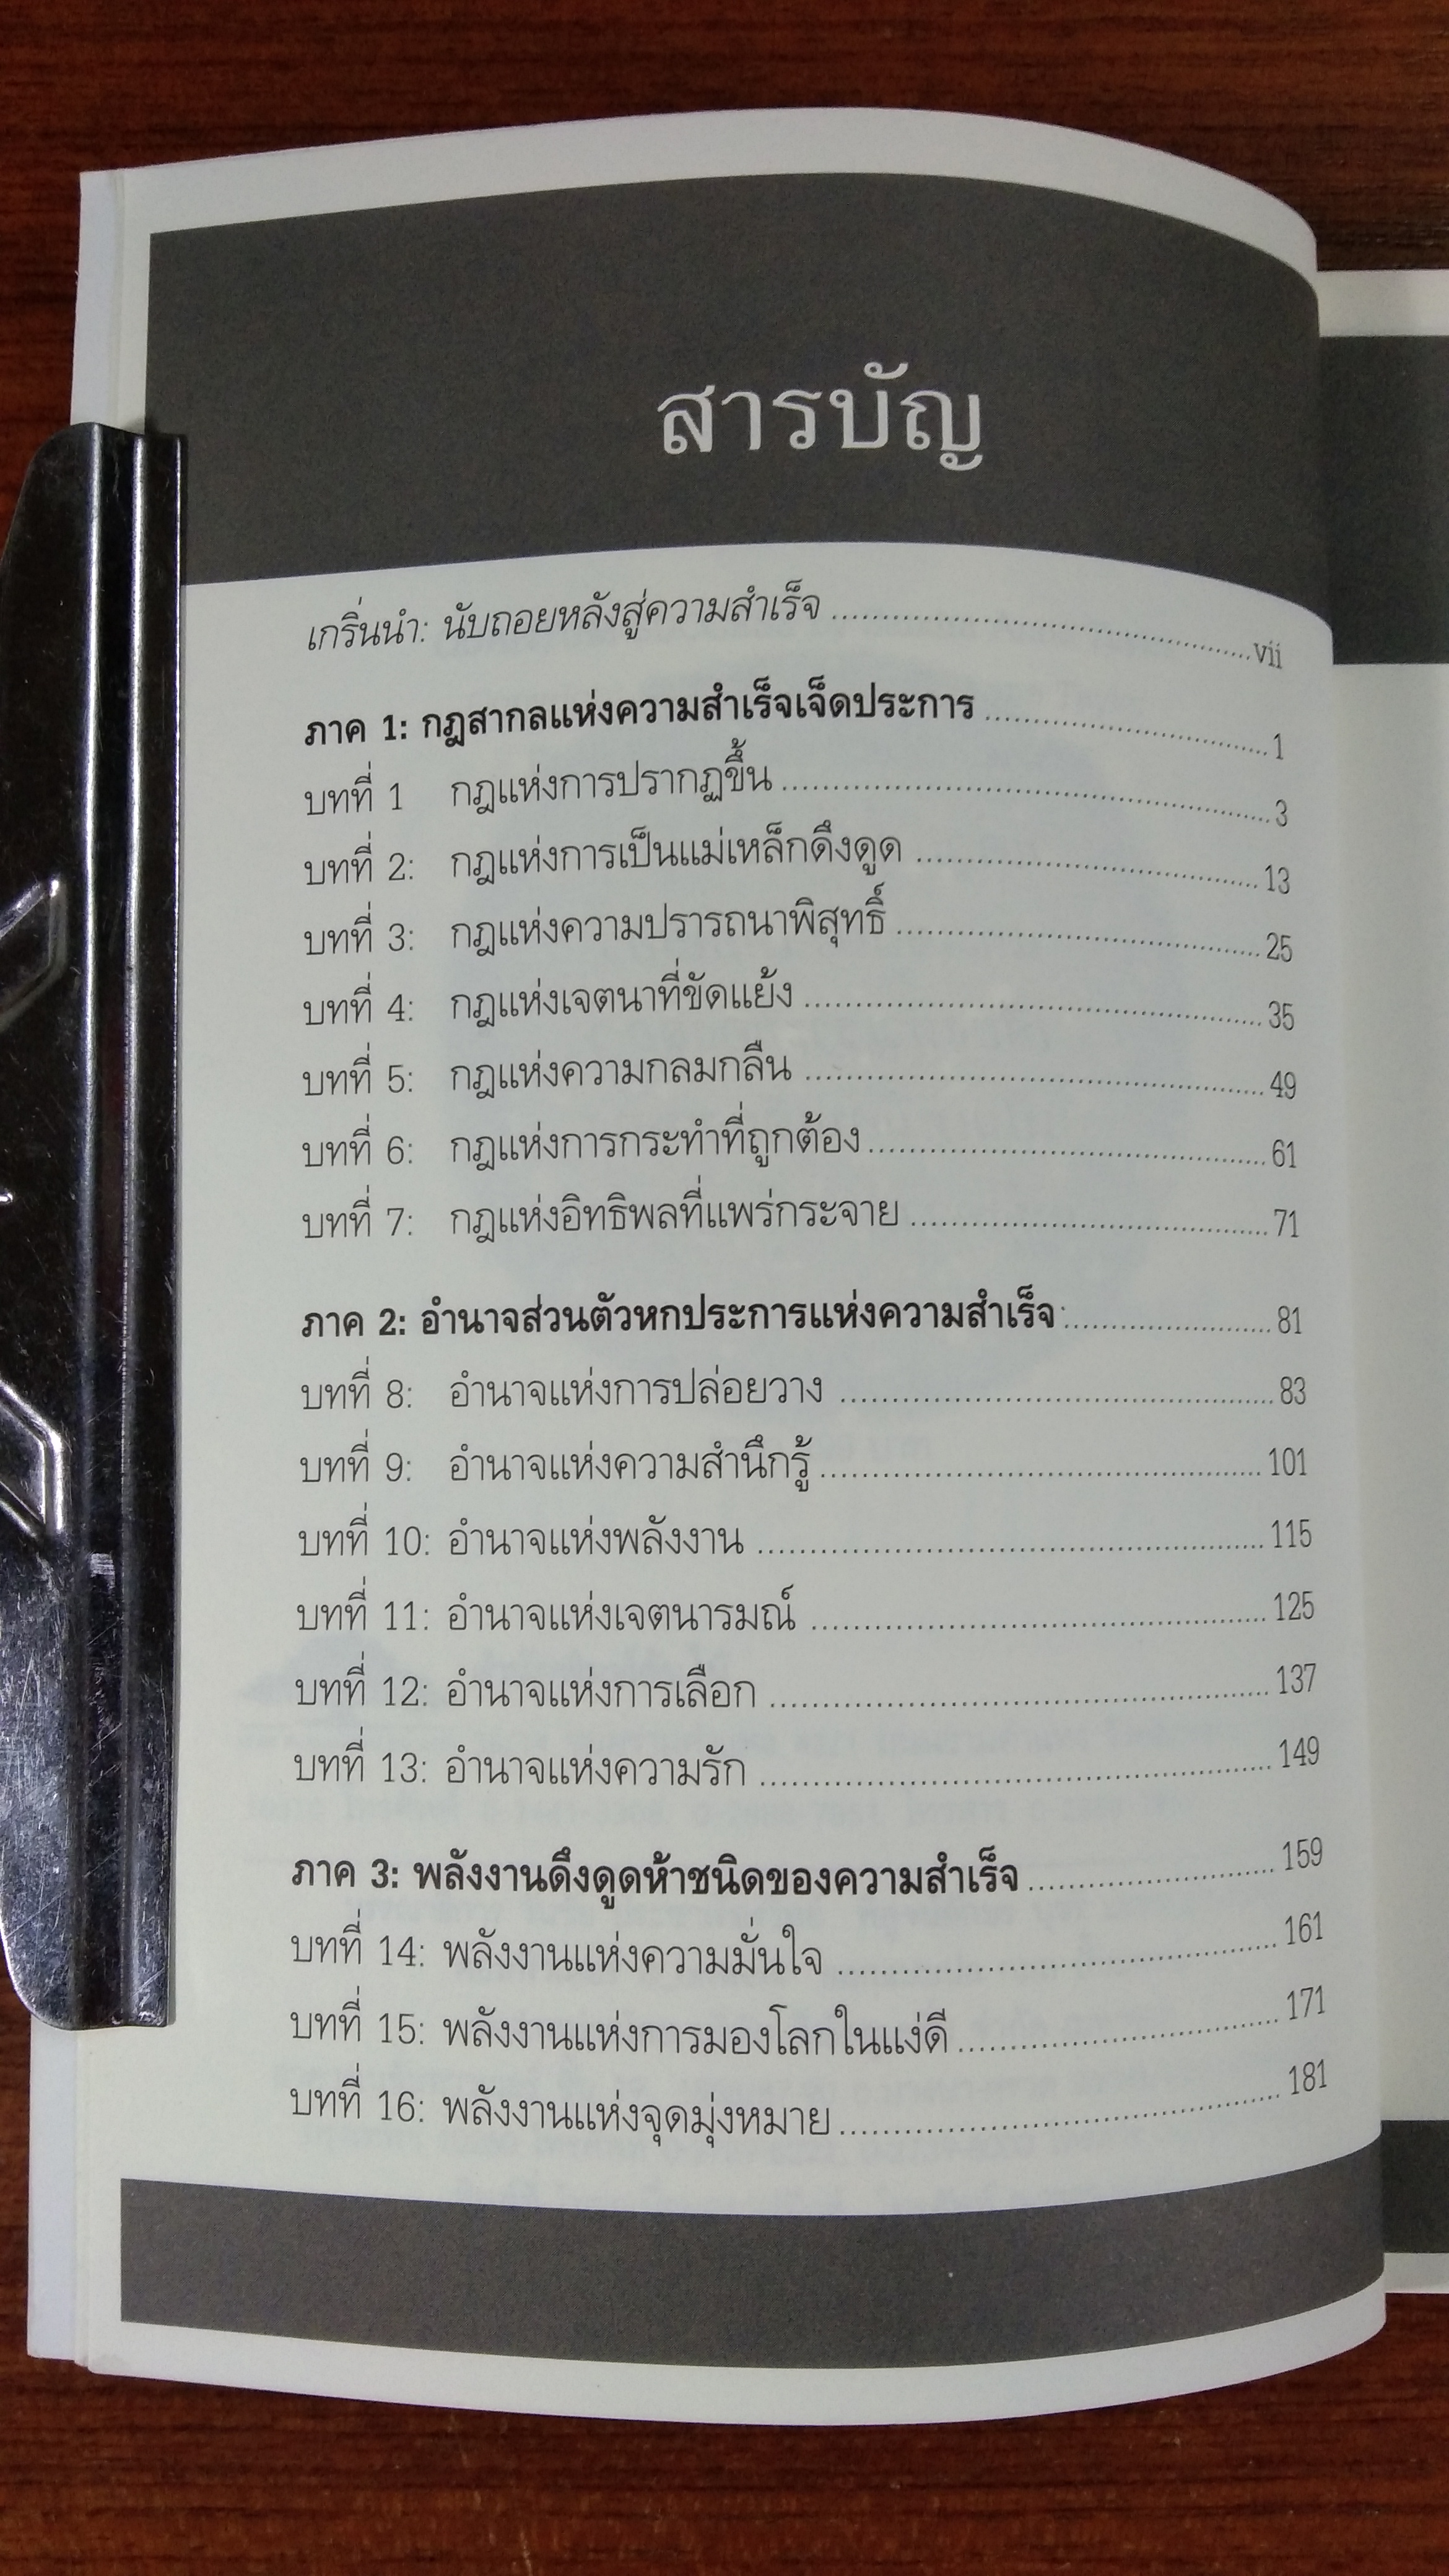 สารบัญ
เกริ่นนำ: นับถอยหลังสู่ความสำเร็จ ........................................ vii
ภาค 1: กฎสากลแห่งความสำเร็จเจ็ดประการ ........................................ 1
บทที่ 1 กฎแห่งการปรากฏขึ้น ........................................ 3
บทที่ 2: กฎแห่งการเป็นแม่เหล็กดึงดูด ........................................ 13
บทที่ 3: กฎแห่งความปรารถนาพิสุทธิ์ ........................................ 25
บทที่ 4: กฎแห่งเจตนาที่ขัดแย้ง ........................................ 35
บทที่ 5: กฎแห่งความกลมกลืน ........................................ 49
บทที่ 6: กฎแห่งการกระทำที่ถูกต้อง ........................................ 61
บทที่ 7: กฎแห่งอิทธิพลที่แพร่กระจาย ........................................ 71
ภาค 2: อำนาจส่วนตัวหกประการแห่งความสำเร็จ ........................................ 81
บทที่ 8: อำนาจแห่งการปล่อยวาง ........................................ 83
บทที่ 9: อำนาจแห่งความสำนึกรู้ ........................................ 101
บทที่ 10: อำนาจแห่งพลังงาน ........................................ 115
บทที่ 11: อำนาจแห่งเจตนารมณ์ ........................................ 125
บทที่ 12: อำนาจแห่งการเลือก ........................................ 137
บทที่ 13: อำนาจแห่งความรัก ........................................ 149
ภาค 3: พลังงานดึงดูดห้าชนิดของความสำเร็จ ........................................ 159
บทที่ 14: พลังงานแห่งความมั่นใจ ........................................ 161
บทที่ 15: พลังงานแห่งการมองโลกในแง่ดี ........................................ 171
บทที่ 16: พลังงานแห่งจุดมุ่งหมาย ........................................ 181